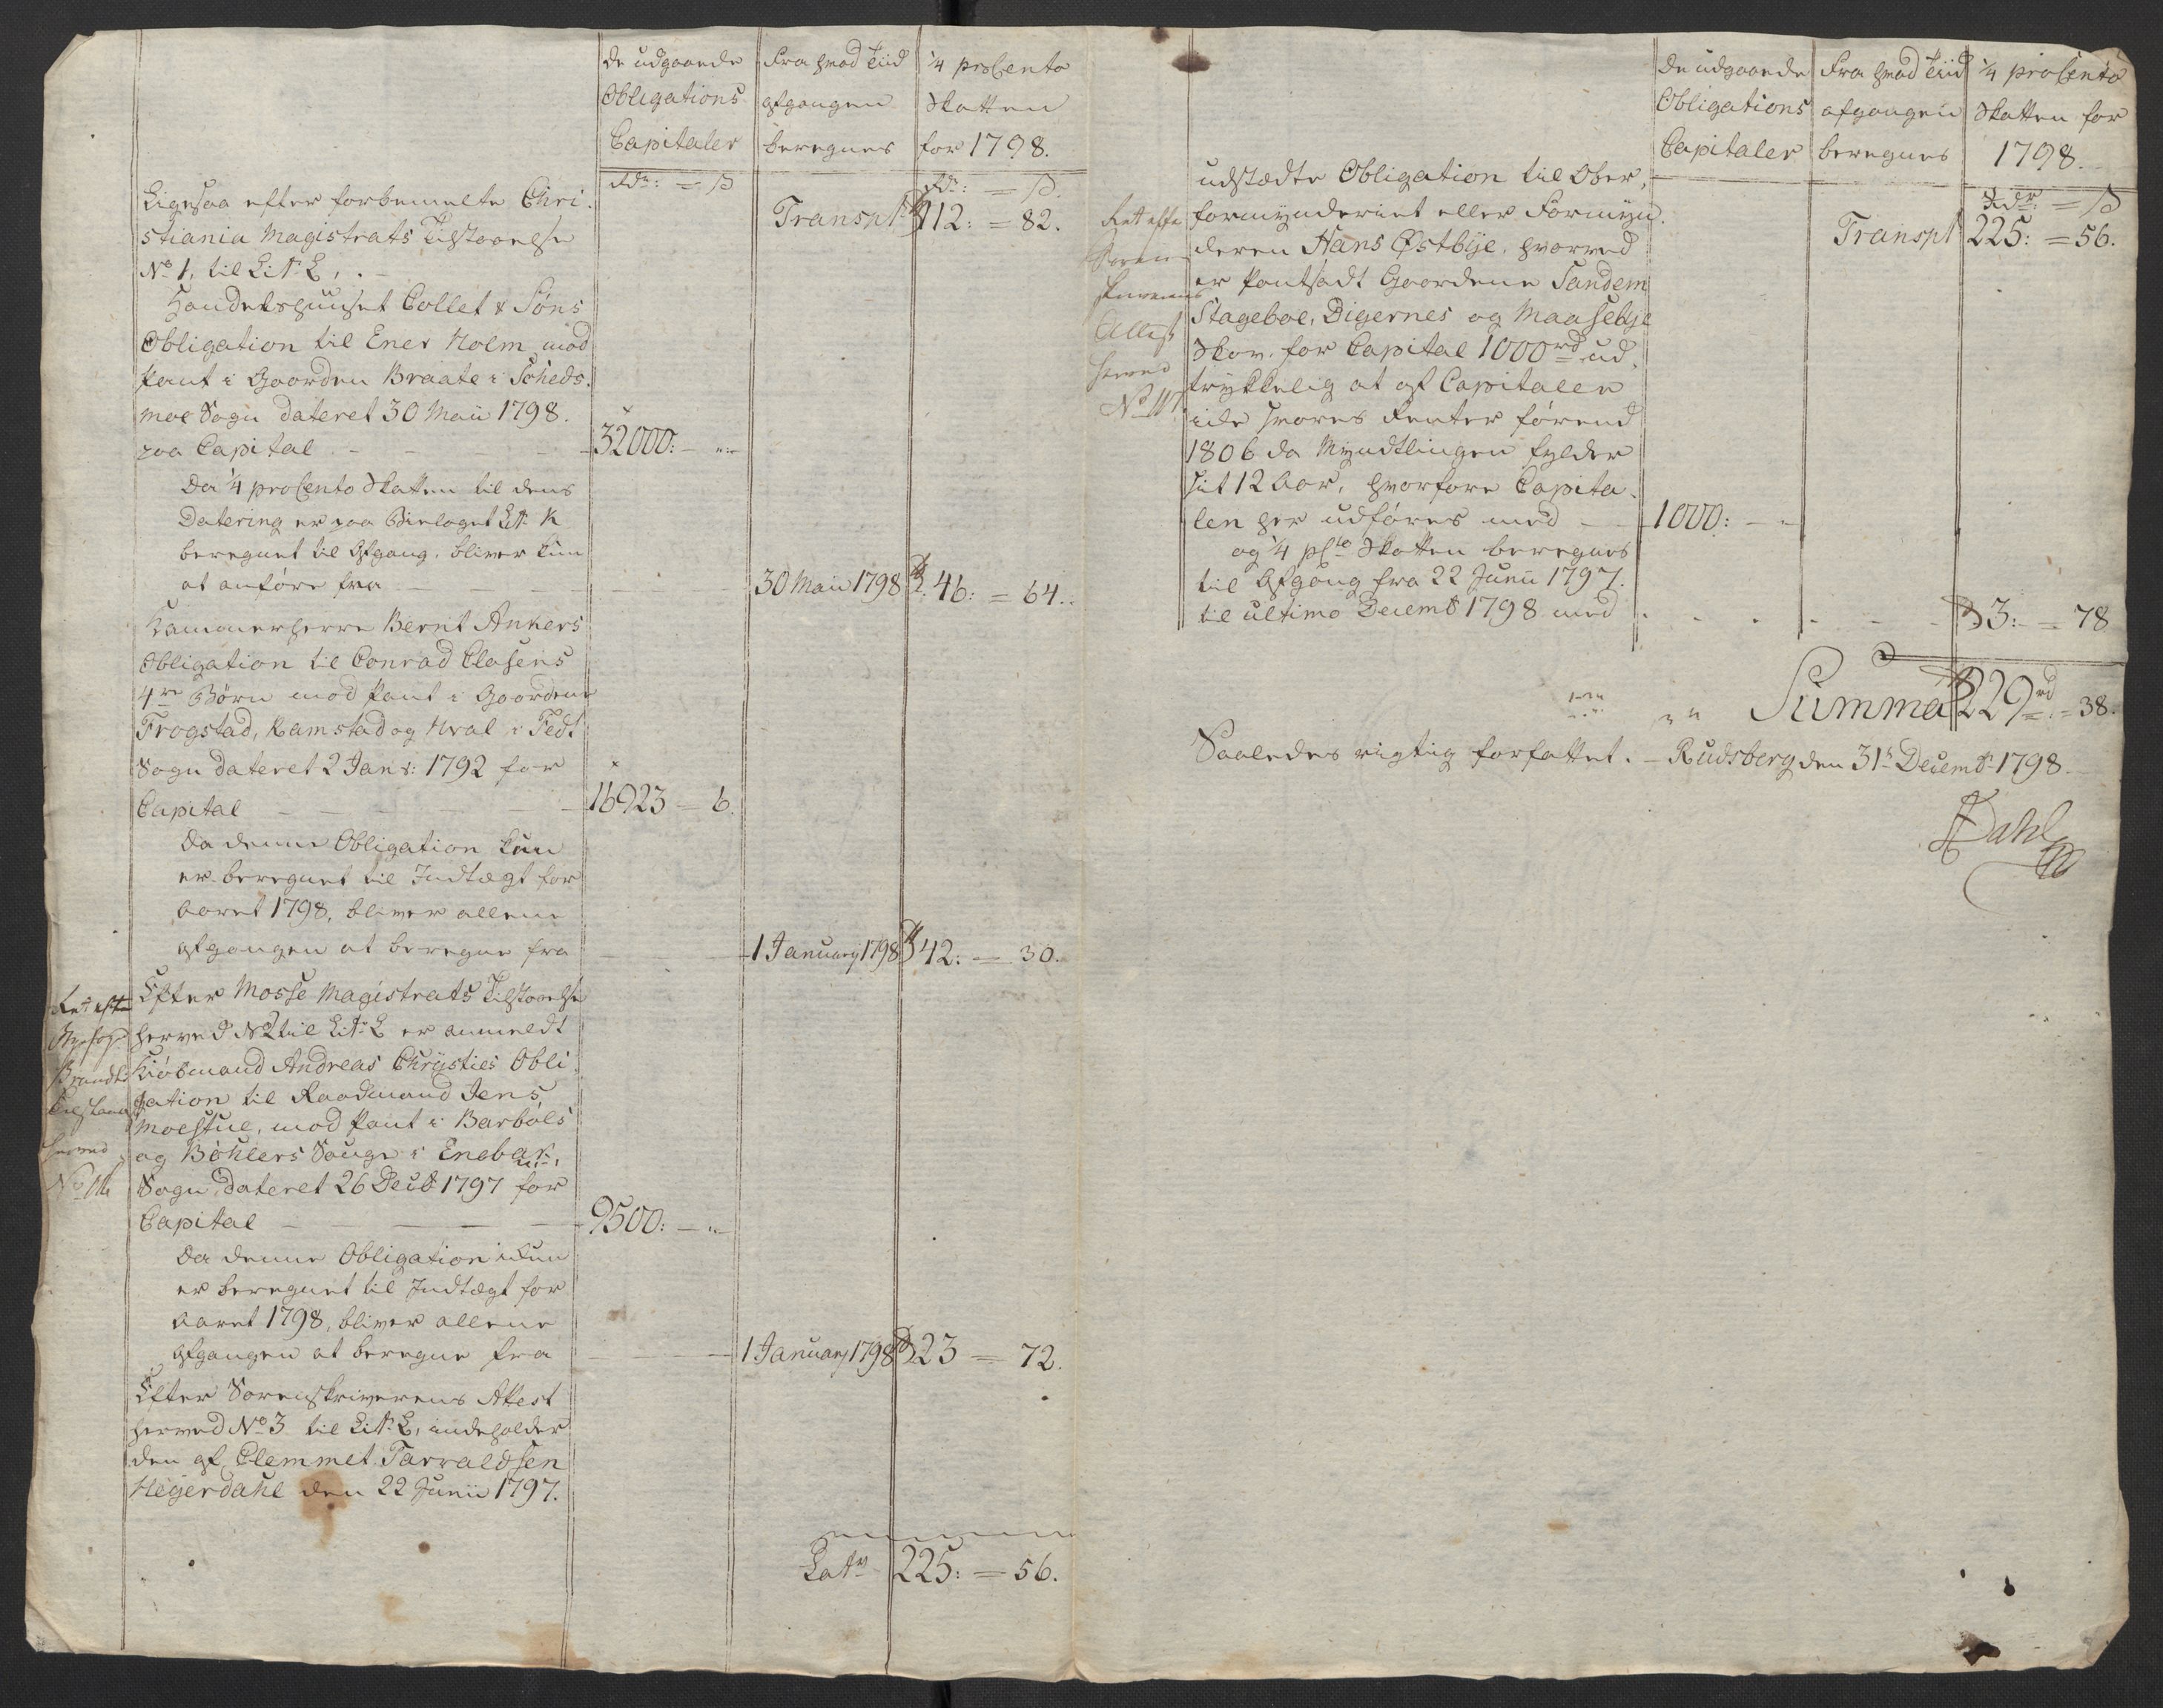 De udgaaende
Obligations
Capitaler
Fra hvad Tiid
afgangen
beregnes
1/4 proCento
Skatten
for 1798.
Rdr: = ß
Rdr: = ß.
Transpt 112: = 82.
Ligesaa efter forbemelte Chri-
stiania Magistrats Tilstaaelse
No 1, til Litr L, .
Handelshuuset Collet & Søns
Obligation til Ener Holm mod
Pant i Gaarden Braate i Scheds-
moe Sogn dateret 30 Maii 1798.
paa Capital - - - 32000: - "
Da 1/4 proCento Skatten til dens
Datering er paa Bielaget Litr K
beregnet til Afgang, bliver kun
at anføre fra - - - 30 Maii 1798 46: = 64.
Kammerherre Bernt Ankers
Obligation til Conrad Clasens
4re Børn mod Pant i Gaardene
Frogstad, Ramstad og Hval i Fedt
Sogn dateret 2 Janr: 1792 for
Capital - - - 16923 - 6.
Da denne Obligation kun
er beregnet til Indtægt for
Aaret 1798, bliver allene
afgangen at beregne fra - - 1 January 1798 42: - 30.
Efter Mosse Magistrats Tilstaaelse
herved No 2 til Litr L er anmeldt
Kiøbmand Andreas Chrysties Obli-
gation til Raadmand Jens
Moestue, mod Pant i Barbøls
og Bøhlers Sauge i Enebak
Sogn, dateret 26 Decb 1797 for
Capital - - - 9500: - "
Rett efter
Brandts
herved
No
Da denne Obligation kun
er beregnet til Indtægt for
Aaret 1798, bliver allene
Afgangen at beregne fra - - 1 January 1798 23 = 72.
Efter Sorenskriverens Attest
herved No 3 til Litr L, indeholder
den af Clemmet Tarraldsen
Hegerdahl den 22 Junii 1797.
Latr 225: = 56.
De udgaaende
Obligations
Capitaler
Fra hvad Tiid
afgangen
beregnes
1/4 proCento
Skatten for
1798.
Rdr = ß
Transpt 225: = 56.
udstædte Obligation til Ober-
formynderiet eller Formyn-
deren Hans Østbye, hvorved
er Pantsadt Gaardene Sandem
Stageboe, Digernes og Maasebye
Skov, for Capital 1000rd ud-
trykkelig at af Capitalen
icke svares Renter førend
1806 da Myndtlingen fylder
sit 12 Aar, hvorfore Capita-
len her udføres med - - 1000: - "
og 1/4 pCto Skatten beregnes
til Afgang fra 22 Junii 1797.
til ultimo Decemb 1798 med - - - 3: = 78
Rett efter
Soren-
skriverens
Attest
herved
No
Summa 229rd = 38.
Saaledes rigtig forfattet. - Rudsberg den 31t Decembr 1798.
Dahl